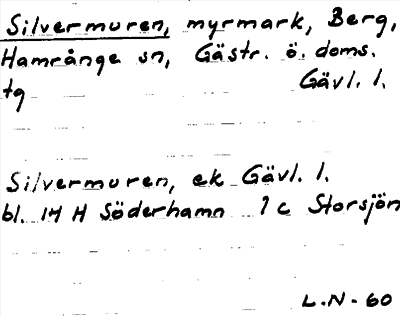 Silvermuren, myrmark, Berg,
Hamrånge sn, Gästr. ö. doms.
tg Gävl. l.
Silvermuren, ek Gävl. l.
bl. 14 H Söderhamn 1 c Storsjön
L.N-60